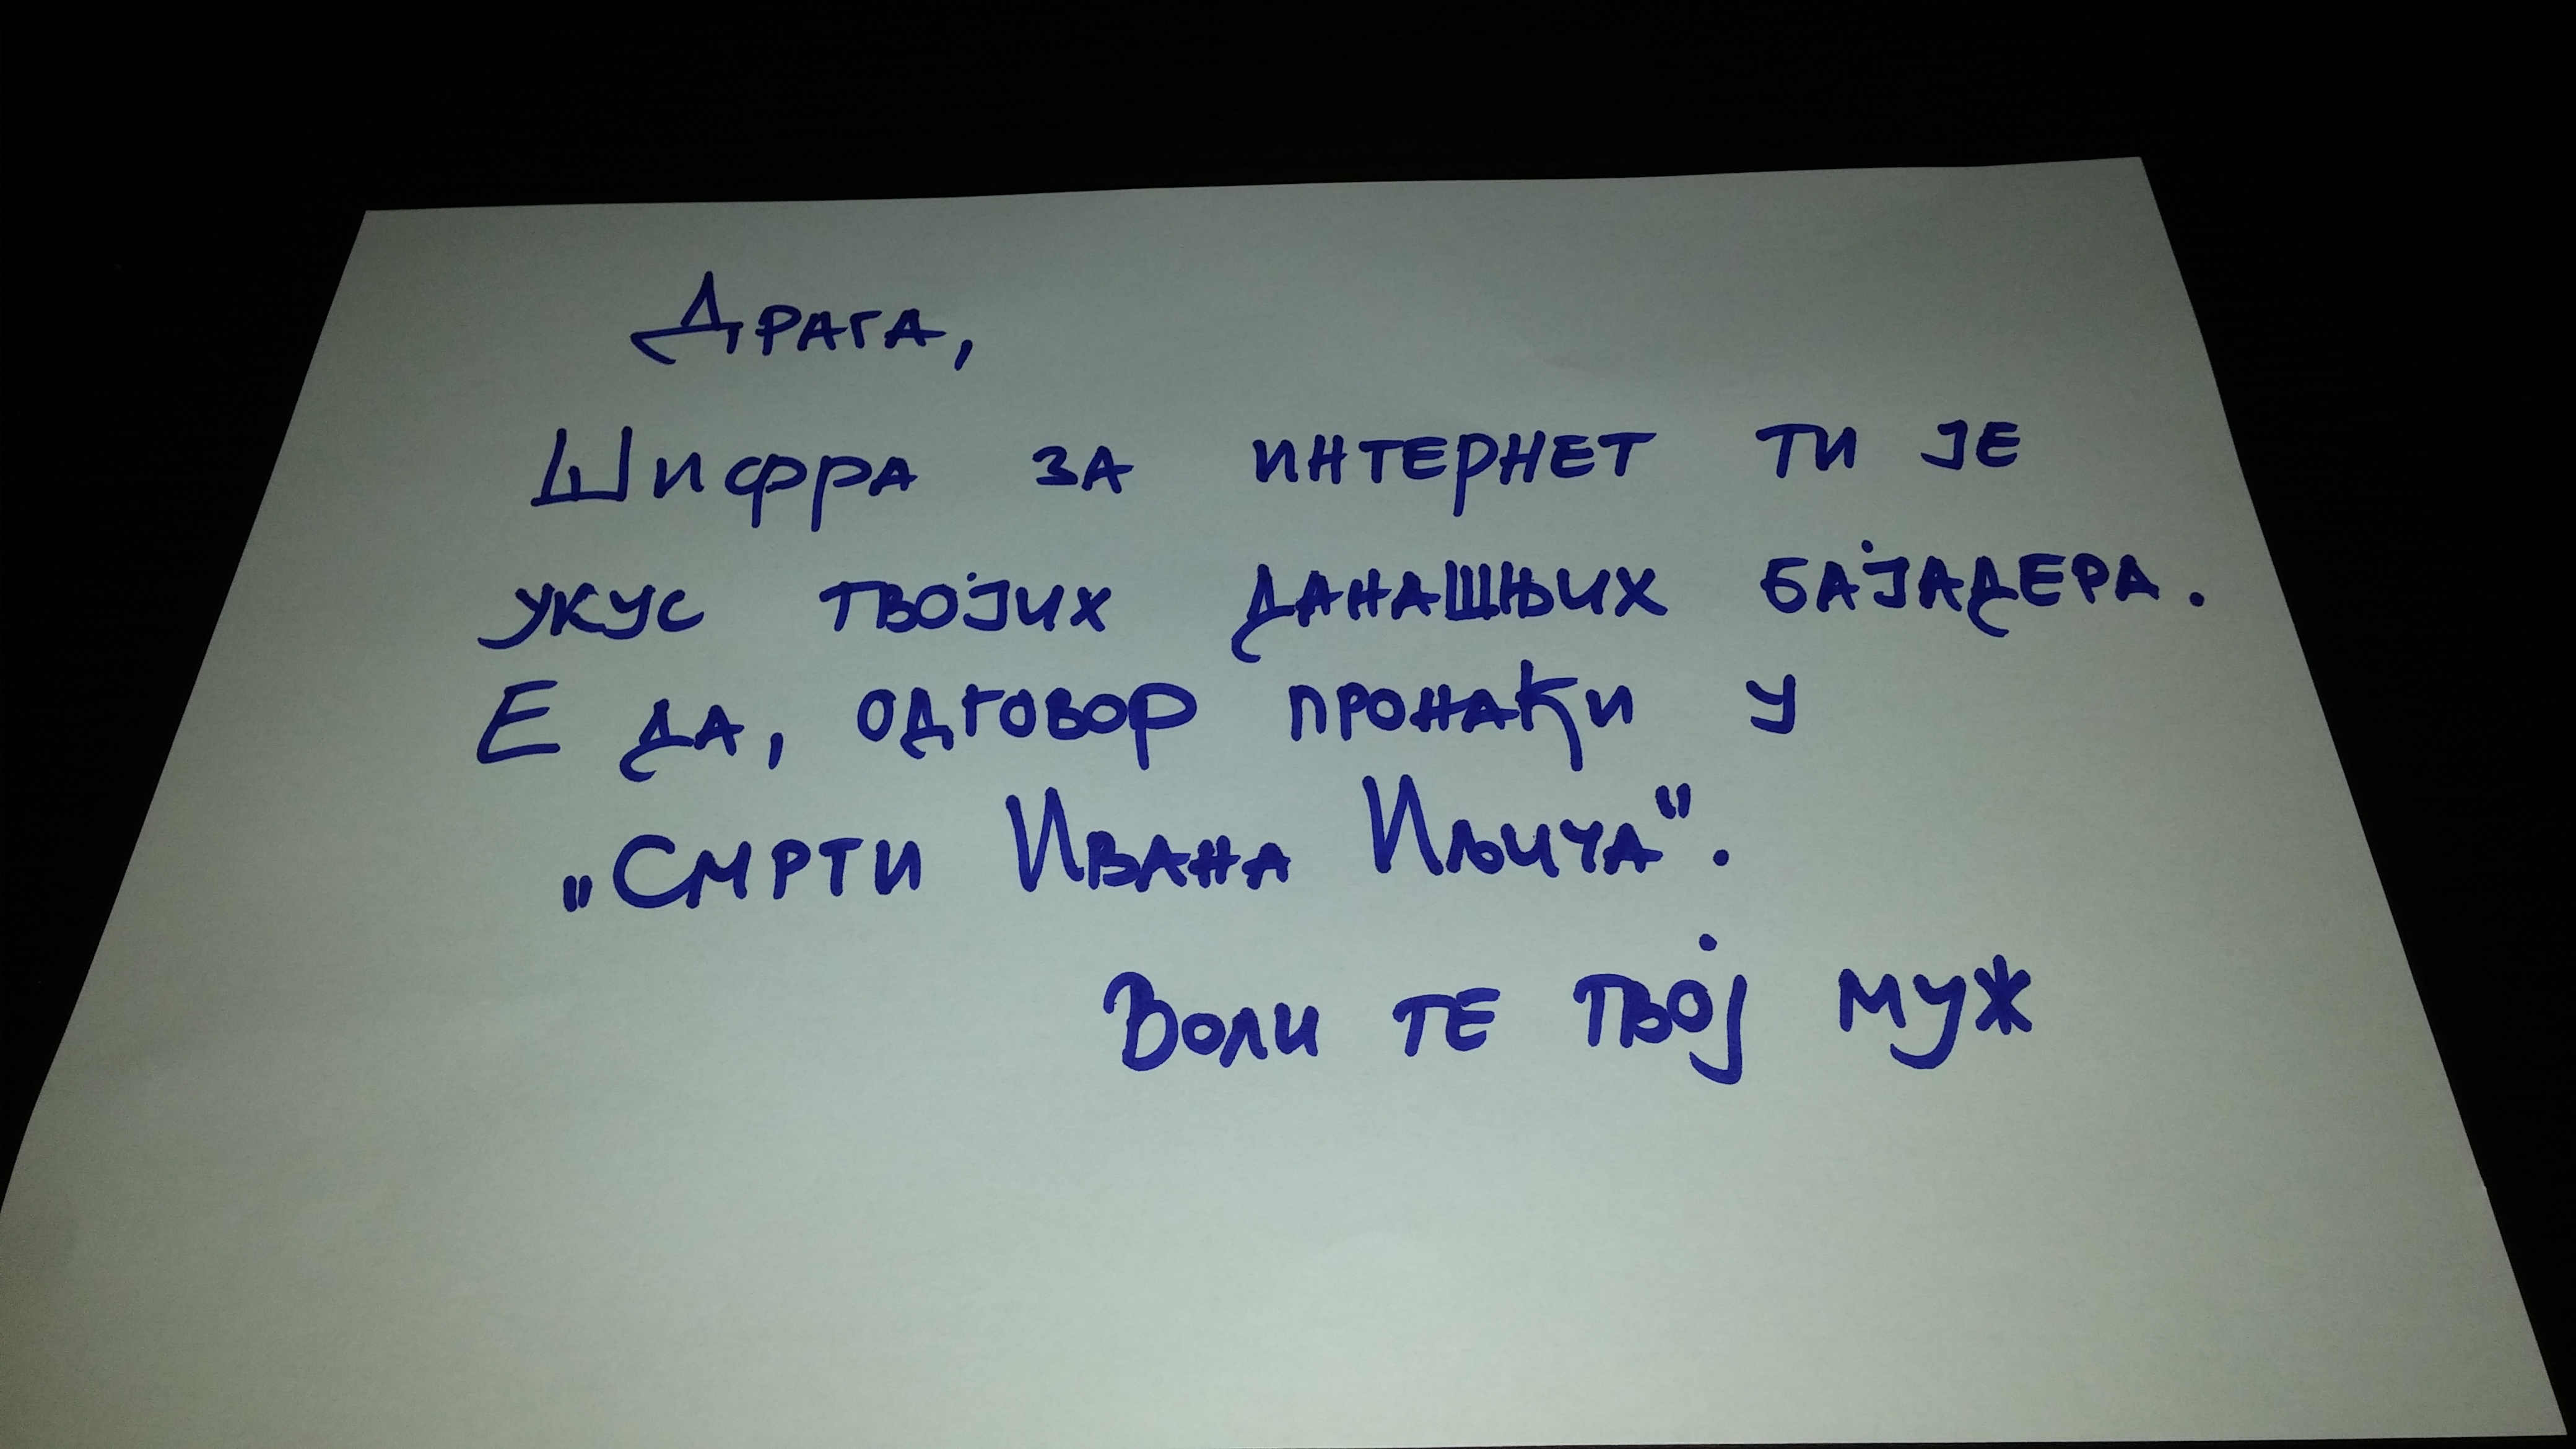 Драга,
Шифра за интернет ти је
укус твојих данашњих бајадера.
Е да, одговор пронађи у
„Смрти Ивана Иљича".
Воли те твој муж